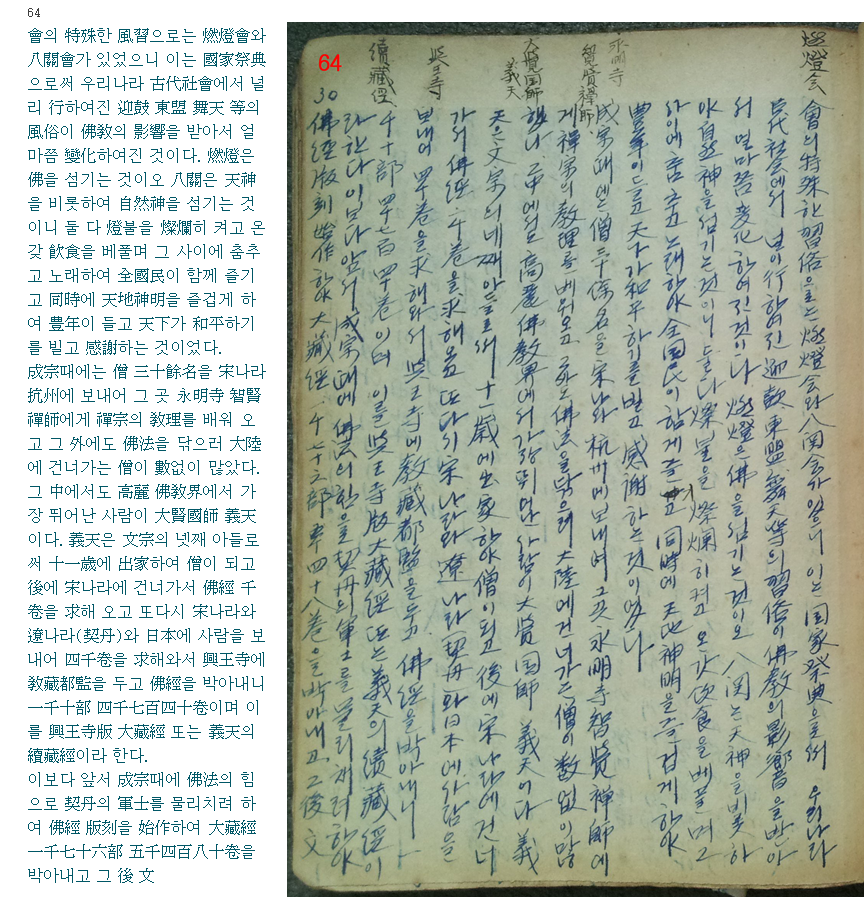 64
會의 特殊한 風習으로는 燃燈會와
八關會가 있었으니 이는 國家祭典
으로써 우리나라 古代社會에서 널
리 行하여진 迎鼓 東盟 舞天 等의
風俗이 佛敎의 影響을 받아서 얼
마쯤 變化하여진 것이다. 燃燈은
佛을 섬기는 것이오 八關은 天神
을 비롯하여 自然神을 섬기는 것
이니 둘 다 燈불을 燦爛히 켜고 온
갖 飮食을 베풀며 그 사이에 춤추
고 노래하여 全國民이 함께 즐기
고 同時에 天地神明을 즐겁게 하
여 豊年이 들고 天下가 和平하기
를 빌고 感謝하는 것이었다.
成宗때에는 僧 三十餘名을 宋나라
抗州에 보내어 그 곳 永明寺 智賢
禪師에게 禪宗의 敎理를 배워 오
고 그 외에도 佛法을 닦으러 大陸
에 건너가는 僧이 數없이 많았다.
그 中에서도 高麗 佛敎界에서 가
장 뛰어난 사람이 大賢國師 義天
이다. 義天은 文宗의 넷째 아들로
써 十一歲에 出家하여 僧이 되고
後에 宋나라에 건너가서 佛經 千
卷을 求해 오고 또다시 宋나라와
遼나라(契丹)와 日本에 사람을 보
내어 四千卷을 求해와서 興王寺에
敎藏都監을 두고 佛經을 박아내니
一千十部 四千七百四十卷이며 이
를 興王寺版 大藏經 또는 義天의
續藏經이라 한다.
이보다 앞서 成宗때에 佛法의 힘
으로 契丹의 軍士를 물리치려 하
여 佛經 版刻을 始作하여 大藏經
一千七十六部 五千四百八十卷을
박아내고 그 後 文
64
30
燃燈会
永明寺
智賢禪師
大覺国師
義天
興王寺
續藏經
會의 特殊한 習俗으로는 燃燈会와 八関会가 있었으니 이는 国家祭典으로써 우리나라
古代社会에서 널리 行하여진 迎鼓 東盟 舞天等의 習俗이 佛教의 影響을 받아
서 얼마쯤 変化하여진것이다 燃燈은 佛을 섬기는것이오 八関은 天神을 비롯하
야 自然神을 섬기는것이니 둘다 燦불을 燦爛히켜고 온갖 飮食을 베풀며 그
사이에 춤추고 노래하야 全國民이 함께 즐기고 同時에 天地神明을 즐겁게 하야
豊年이 드고 天下가 和平하기를 빌고 感謝하는것이었다
成宗때에는 僧 三十余名을 宋나라 杭州에 보내여 그곳 永明寺 智覽禪師에
게 禪宗의 教理를 배워오고 그外도 佛法을 닦으려 大陸에 건너가는 僧이 数없이 많
했다 그中에서도 高麗佛教界에서 가장 뛰어난 사람이 大覽国師 義天이다 義
天은 文宗의 네째 아들로써 十一歲에 出家하야 僧이 되고 後에 宋나라에 건너
가서 佛經 千卷을 求해옴 또다시 宋나라와 遼나라 契丹와 日本에 사람을
보내어 四千卷을 求해와서 興王寺에 教藏都監을 두고 佛經을 박아내니 一
千十部 四千七百四十卷이며 이를 興王寺版大藏經 또는 義天의 續藏經이
라 한다 이보다 앞서 成宗때에 佛法의 힘으로 契丹의 軍士를 물리치려하야
佛經版刻 始作하야 大藏經 一千七十六部 五千四十八卷을 박아내고 그後 文